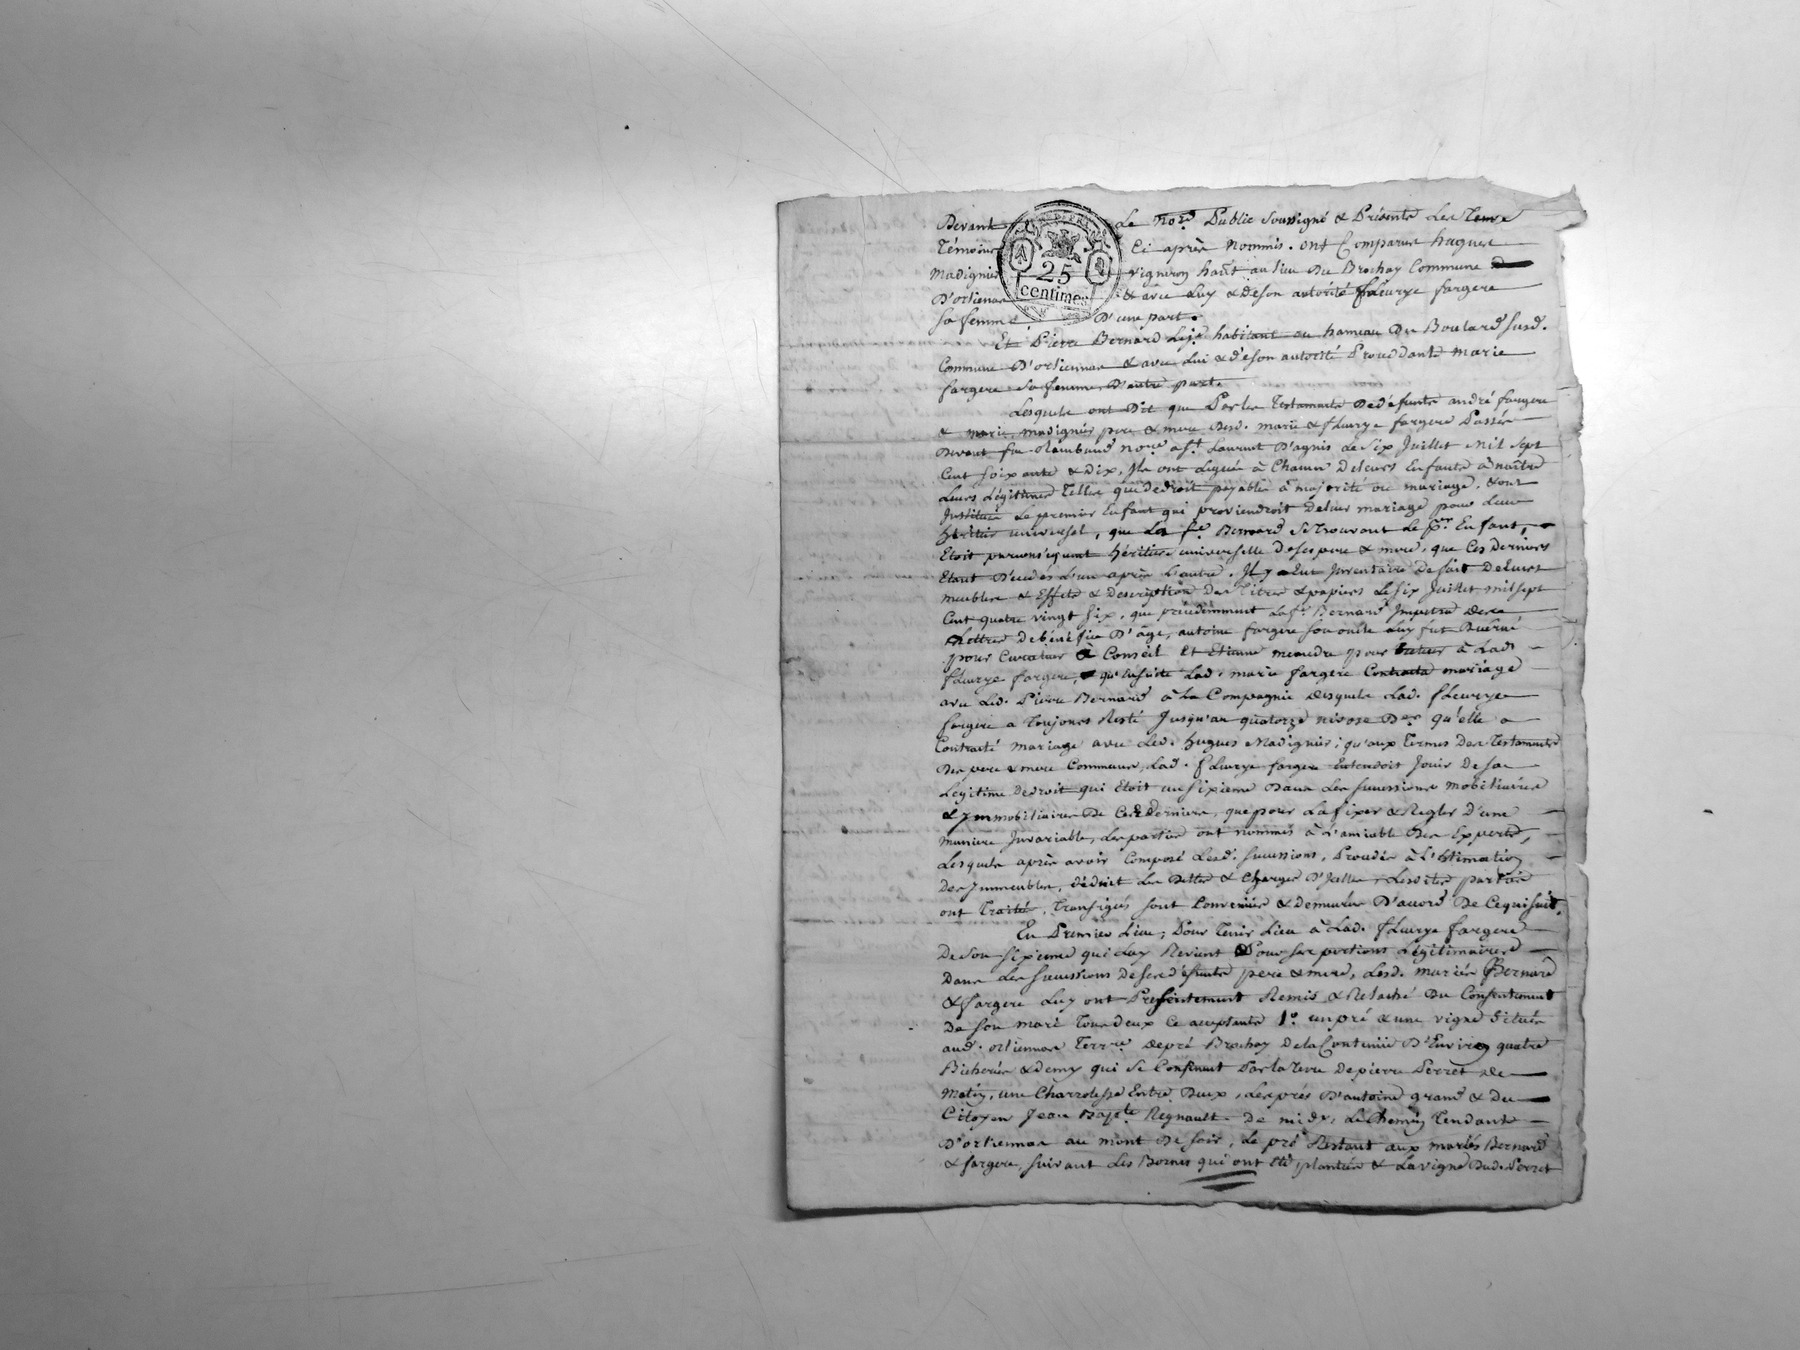 Devant Le No.re Public soussigné & Présents Les Temo
Témoins Ci après Nommés. ont Comparus hugues
Madignier vigneron hañt au lieu Du Brochay Commune
D'orlienas & avec Luy & de son autorité fleurye fargere
sa femme D'une part.
Et Pierre Bernard habitant au hameau Du Boulard susd.
Commune D'orlienas & avec Lui & de son autorité Procedante marie
fargere sa femme, D'autre part.
Lesquels ont Dit que Par les Testaments De defunts andré fargere
& marie madignier pere & mere Desd. marie & fleurye fargere Passés
Devant feu Rambaud no.re a S.t Laurent D'agnis Le Six Juillet Mil Sept
Cent soixante & Dix, Ils ont Legués à Chacun De leurs Enfants à naître
Leurs Légitimes Telles que de droit payables à majorité ou mariage. & ont
Institué Le premier Enfant qui proviendroit De leur mariage pour Leur
héritier universel, que La fe Bernard Se Trouvant le Pr. Enfant,
Etoit par consequent héritiere universelle De ses pere & mere, que Ces Derniers
Etant Décédés L'un après L'autre. Il y Eut Inventaire De fait De Leurs
meubles & Effets & Description Des Titres & papiers Le Six Juillet mil sept
Cent quatre vingt Six, que précédemment La fe Bernard Impetra Des
Lettres de bénéfice D'âge, antoine fargere Son oncle Luy fut Decerné
pour Curateur & Conseil Et Etienne pour tuteur à Lad.
fleurye fargere, qu'ensuite Lad. marie fargere Contracta mariage
avec Led. Pierre Bernard à La Compagnie Desquels Lad. fleurye
fargere a Toujours Resté Jusqu'au quatorze nivose D.er qu'elle a
Contracté mariage avec Led. hugues Madignier; qu'aux Termes Des Testaments
Des pere & mere Communs, Lad. fleurye fargere Entendoit Jouir De Sa
Légitime De droit qui Etoit un Sixieme Dans Les Successions mobiliaires
& Immobiliaires De Ces Derniers, que pour La fixer & Regler D'une
maniere Invariable, Les parties ont nommés à L'amiable Des Experts,
Lesquels après avoir Composé Lesd. Successions, Procédés à L'Estimation
Des Immeubles, déduit Les Dettes & Charges D'Icelles, Lesdites parties
ont Traité, Transigés sont Convenues & Demeurées D'accord De Ce qui suit,
En Premier Lieu; Pour Tenir Lieu à Lad. fleurye fargere
De Son Sixieme qui Luy Revient Pour Ses portions Légitimaires
Dans Les Successions De Ses défunts pere & mere, Lesd. mariés Bernard
& fargere Luy ont Présentement Remis & Relaché Du Consentement
De Son mari Tous Deux Ce acceptants 1.º un pré & une vigne Situés
aud. orlienas Terr.re De pré Brochay De la Contenüe D'Environ quatre
Bicherées & Demy qui Se Confinent Par la Terre De pierre Perret de
Matin, une Charroliere Entre Deux, Les prés D'antoine grand & du
Citoyen Jean Bapte Regnault. De midy, Le Chemin Tendant
D'orlienas au mont De Soir, Le pré Restant aux mariés Bernard
& fargere, Suivant Les Bornes qui ont Eté plantées & La vigne Dud. Perret
25
centimes